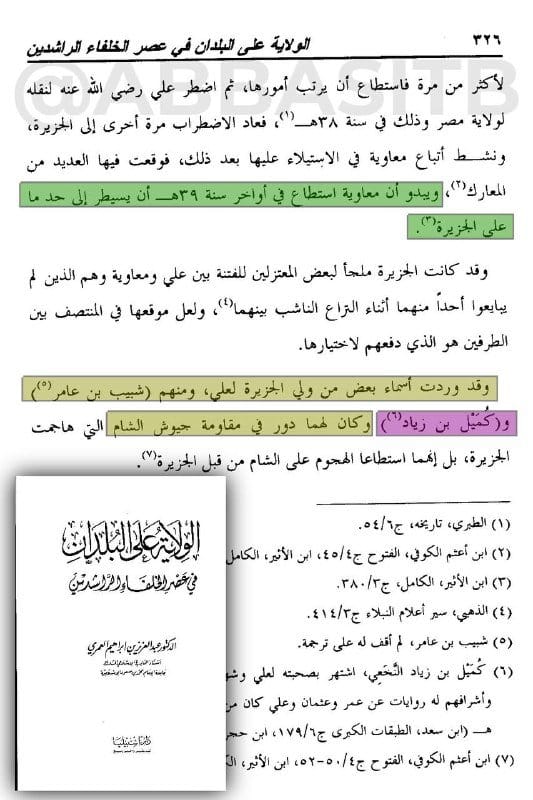 ٣٢٦
الولاية على البلدان في عصر الخلفاء الراشدين
@ABBASITB
لأكثر من مرة فاستطاع أن يرتب أمورها، ثم اضطر علي رضي الله عنه لنقله
لولاية مصر وذلك في سنة ٣٨هـ(١)، فعاد الاضطراب مرة أخرى إلى الجزيرة،
ونشط أتباع معاوية في الاستيلاء عليها بعد ذلك، فوقعت فيها العديد من
المعارك(٢)، ويبدو أن معاوية استطاع في أواخر سنة ٣٩هـ أن يسيطر إلى حد ما
على الجزيرة(٣).
وقد كانت الجزيرة ملجأ لبعض المعتزلين للفتنة بين علي ومعاوية وهم الذين لم
يبايعوا أحداً منهما أثناء النزاع الناشب بينهما(٤)، ولعل موقعها في المنتصف بين
الطرفين هو الذي دفعهم لاختيارها.
وقد وردت أسماء بعض من ولي الجزيرة لعلي، ومنهم (شبيب بن عامر(٥))
و(كُمَيْل بن زياد(٦)) وكان لهما دور في مقاومة جيوش الشام التي هاجمت
الجزيرة، بل إنهما استطاعا الهجوم على الشام من قبل الجزيرة(٧).
(١) الطبري، تاريخه، ج٥٤/٦.
(٢) ابن أعثم الكوفي، الفتوح ج٤٥/٤، ابن الأثير، الكامل
(٣) ابن الأثير، الكامل، ج٣٨٠/٣.
(٤) الذهبي، سير أعلام النبلاء ج٤١٤/٣.
(٥) شبيب بن عامر، لم أقف له على ترجمة.
(٦) كُمَيْل بن زياد النَّخَعي، اشتهر بصحبته لعلي وشهد
وأشرافهم له روايات عن عمر وعثمان وعلي كان من
هـ (ابن سعد، الطبقات الكبرى ج١٧٩/٦، ابن حجر
(٧) ابن أعثم الكوفي، الفتوح ج٥٠/٤-٥٢، ابن الأثير، الكا
الولاية على البلدان
في عصر الخلفاء الراشدين
الدكتور عبد العزيز بن إبراهيم العمري
دار إشبيليا